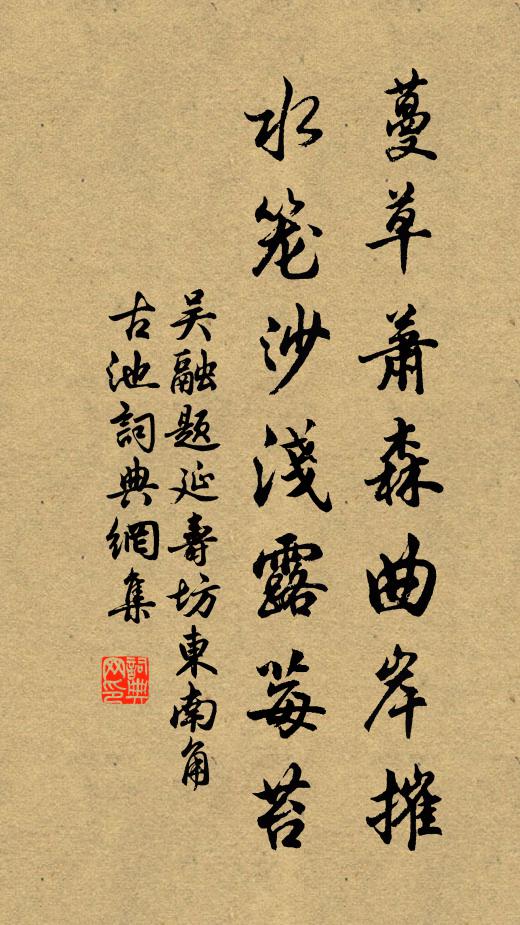 蔓草萧森曲岸摧
水笼沙淺露莓苔
吴融题延壽坊東南角
古池詞典網集
詞典
网印